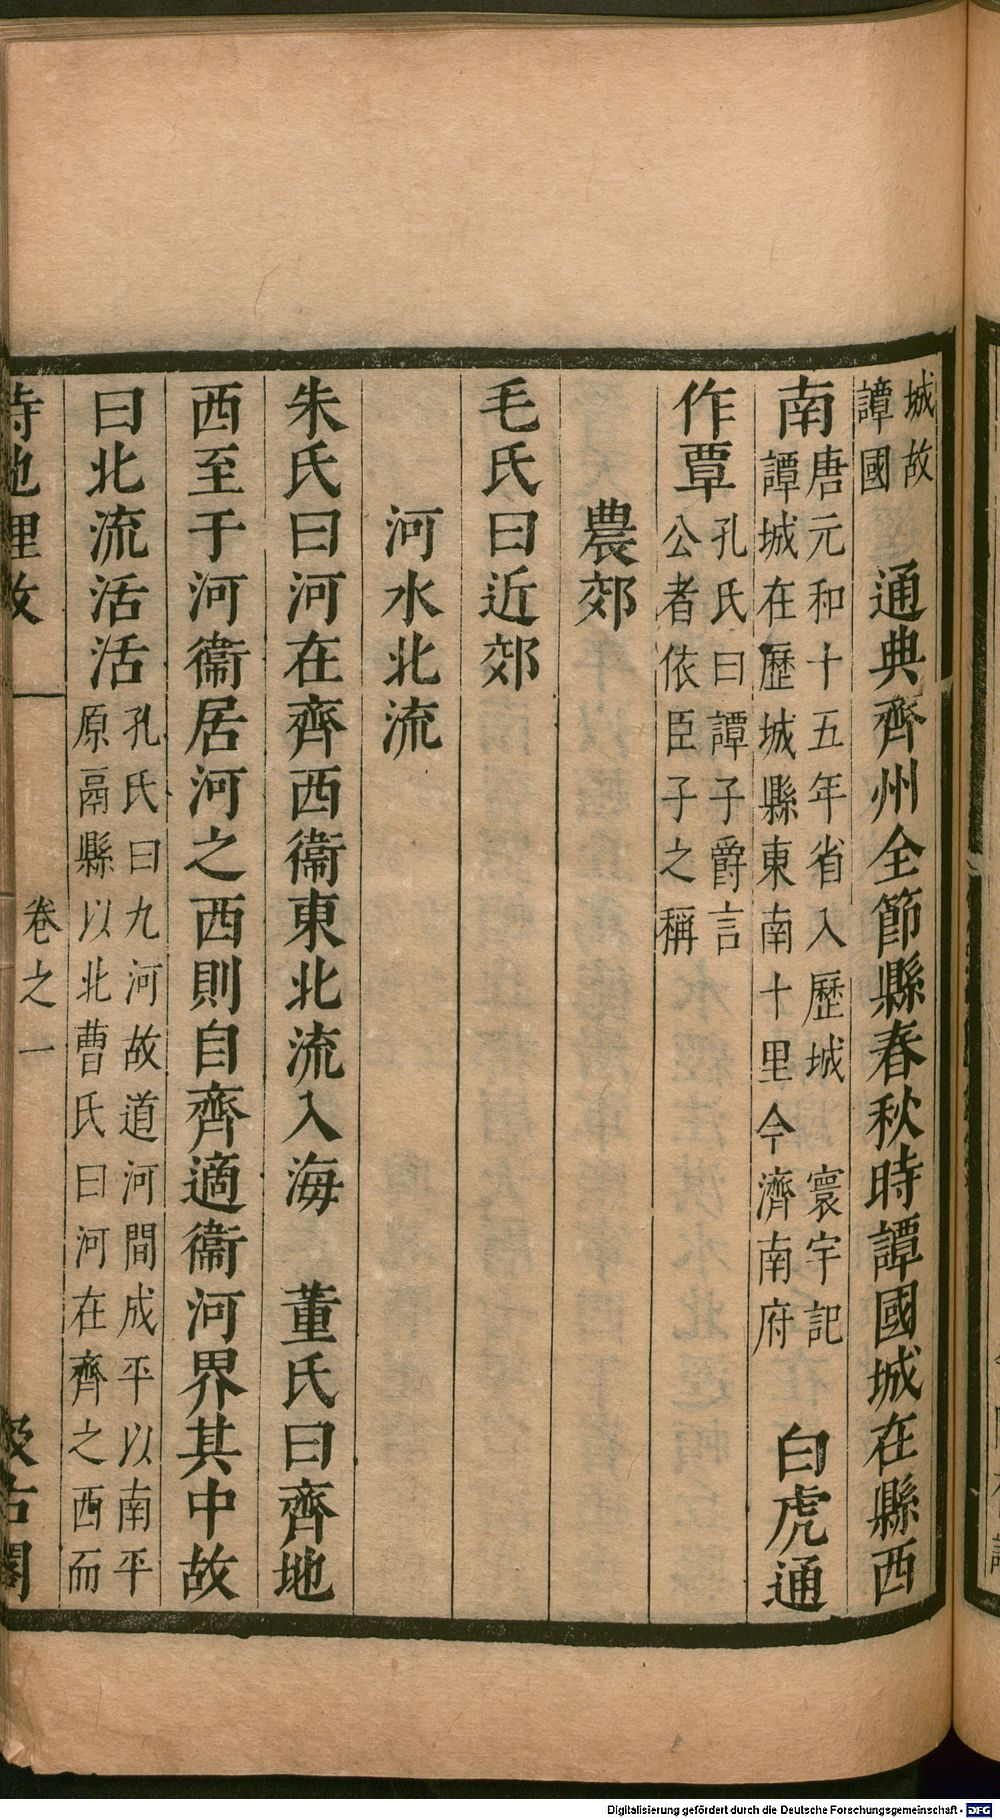 城故譚國　通典齊州全節縣春秋時譚國城在縣西
南唐元和十五年省入歷城　寰宇記譚城在歷城縣東南十里今濟南府　白虎通
作覃孔氏曰譚子爵言公者依臣子之稱
農郊
毛氏曰近郊
河水北流
朱氏曰河在齊西衞東北流入海　董氏曰齊地
西至于河衞居河之西則自齊適衞河界其中故
曰北流活活孔氏曰九河故道河間成平以南平原鬲縣以北曹氏曰河在齊之西而
詩地理攷　卷之一　汲古閣
Digitalisierung gefördert durch die Deutsche Forschungsgemeinschaft - DFG